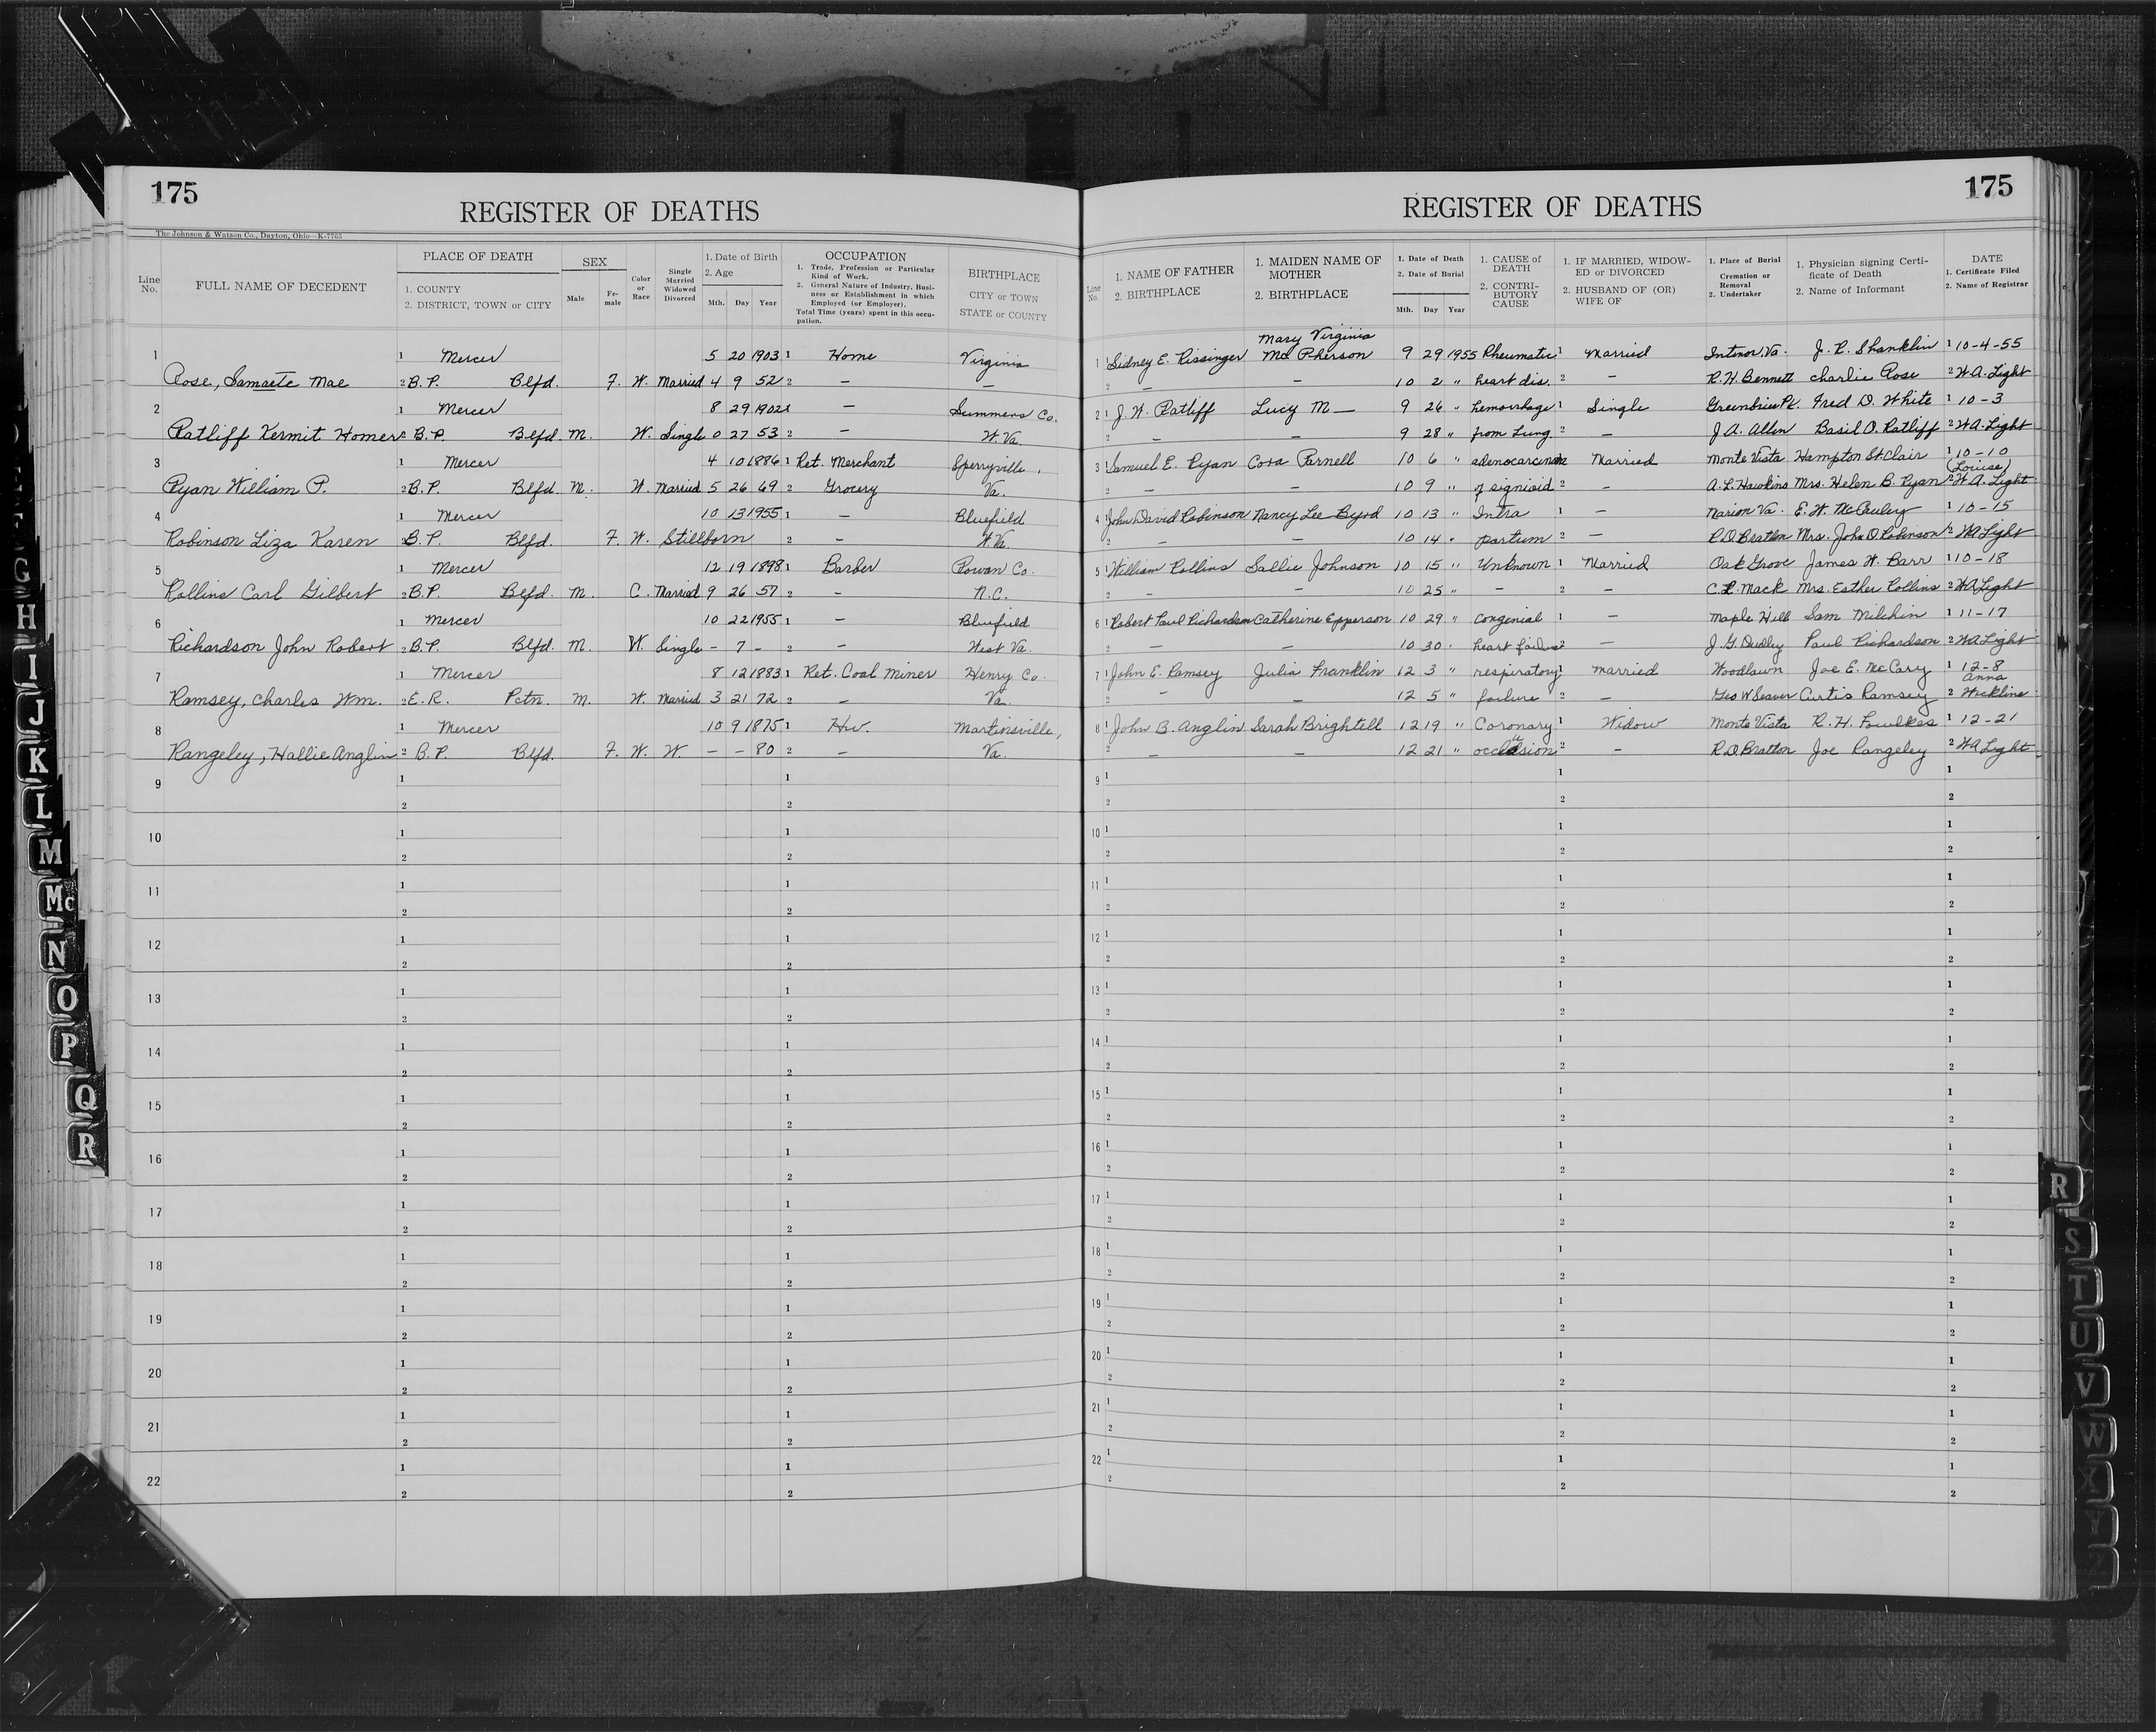 175
REGISTER OF DEATHS
The Johnson & Watson Co., Dayton, Ohio—K-7763
Line No. FULL NAME OF DECEDENT PLACE OF DEATH 1. COUNTY 2. DISTRICT, TOWN or CITY SEX Male Fe-male Color or Race Single Married Widowed Divorced 1. Date of Birth 2. Age Mth. Day Year OCCUPATION 1. Trade, Profession or Particular Kind of Work. 2. General Nature of Industry, Business or Establishment in which Employed (or Employer). Total Time (years) spent in this occupation. BIRTHPLACE CITY or TOWN STATE or COUNTY
1 1 Mercer 5 20 1903 1 Home Virginia
Rose, Samaete Mae 2 B.P. Blfd. F. W. Married 4 9 52 2 — —
2 1 Mercer 8 29 1902 1 — Summers Co.
Ratliff Kermit Homer 2 B.P. Blfd M. W. Single 0 27 53 2 — W.Va.
3 1 Mercer 4 10 1886 1 Ret. Merchant Sperryville,
Ryan William P. 2 B.P. Blfd. M. W. Married 5 26 69 2 Grocery Va.
4 1 Mercer 10 13 1955 1 — Bluefield
Robinson Liza Karen 2 B.P. Blfd. F. W. Stillborn 2 — W.Va.
5 1 Mercer 12 19 1898 1 Barber Rowan Co.
Rollins Carl Gilbert 2 B.P. Blfd. M. C. Married 9 26 57 2 — N.C.
6 1 Mercer 10 22 1955 1 — Bluefield
Richardson John Robert 2 B.P. Blfd. M. W. Single – 7 – 2 — West Va.
7 1 Mercer 8 12 1883 1 Ret. Coal miner Henry Co.
Ramsey, Charles Wm. 2 E.R. Pctn. M. W. Married 3 21 72 2 — Va.
8 1 Mercer 10 9 1875 1 Hw. Martinsville,
Rangeley, Hallie Anglin 2 B.P. Blfd. F. W. W. – – 80 2 — Va.
9 1 1
2 2
10 1 1
2 2
11 1 1
2 2
12 1 1
2 2
13 1 1
2 2
14 1 1
2 2
15 1 1
2 2
16 1 1
2 2
17 1 1
2 2
18 1 1
2 2
19 1 1
2 2
20 1 1
2 2
21 1 1
2 2
22 1 1
2 2
G
H
I
J
K
L
M
Mc
N
O
P
Q
R
175
REGISTER OF DEATHS
Line No. 1. NAME OF FATHER 2. BIRTHPLACE 1. MAIDEN NAME OF MOTHER 2. BIRTHPLACE 1. Date of Death 2. Date of Burial Mth. Day Year 1. CAUSE OF DEATH 2. CONTRIBUTORY CAUSE 1. IF MARRIED, WIDOWED or DIVORCED 2. HUSBAND OF (OR) WIFE OF 1. Place of Burial Cremation or Removal 2. Undertaker 1. Physician signing Certificate of Death 2. Name of Informant DATE 1. Certificate Filed 2. Name of Registrar
Mary Virginia
1 1 Sidney E. Rissinger McPherson 9 29 1955 Rheumatic 1 Married Intmor, Va. J. R. Shanklin 1 10-4-55
2 — — 10 2 " heart dis. 2 — R. H. Bennett Charlie Rose 2 W.A. Light
2 1 J. W. Ratliff Lucy M— 9 26 " hemorrhage 1 Single Greenbrier Pk. Fred D. White 1 10-3
2 — — 9 28 " from Lung. 2 — J A. Allen Basil O. Ratliff 2 W.A. Light
3 1 Samuel E. Ryan Cora Parnell 10 6 " adenocarcinom Married Monte Vista Hampton St.Clair 1 10-10
(Louise)
2 — — 10 9 " of sigmioid 2 — A.L. Hawkins Mrs. Helen B. Ryan 2 W.A. Light
4 1 John David Robinson Nancy Lee Byrd 10 13 " Intra 1 — Marion Va. E. W. McCauley 1 10-15
2 — — 10 14 " partum 2 — R.D. Bratton Mrs. John D. Robinson 2 W.A. Light
5 1 William Rollins Sallie Johnson 10 15 " Unknown 1 Married Oak Grove James W. Barr 1 10-18
2 — — 10 25 " — 2 — C.R. Mack Mrs. Esther Rollins 2 W.A. Light
6 1 Robert Paul Richardson Catherine Epperson 10 29 " congenial 1 — Maple Hill Sam Milchin 1 11-17
2 — — 10 30 " heart failure 2 — J. G. Dudley Paul Richardson 2 W.A. Light
7 1 John E. Ramsey Julia Franklin 12 3 " respiratory 1 married Woodlawn Joe E. McCary 1 12-8
Anna
2 — — 12 5 " failure 2 — Geo W Seaver Curtis Ramsey 2 Wickline
8 1 John B. Anglin Sarah Brightell 12 19 " Coronary 1 Widow Monte Vista R. H. Faulkes 1 12-21
2 — — 12 21 " occlusion 2 — R.D. Bratton Joe Rangeley 2 W.A. Light
9 1 1 1
2 2 2
10 1 1 1
2 2 2
11 1 1 1
2 2 2
12 1 1 1
2 2 2
13 1 1 1
2 2 2
14 1 1 1
2 2 2
15 1 1 1
2 2 2
16 1 1 1
2 2 2
17 1 1 1
2 2 2
18 1 1 1
2 2 2
19 1 1 1
2 2 2
20 1 1 1
2 2 2
21 1 1 1
2 2 2
22 1 1 1
2 2 2
R
S
T
U
V
W
X
Y
Z